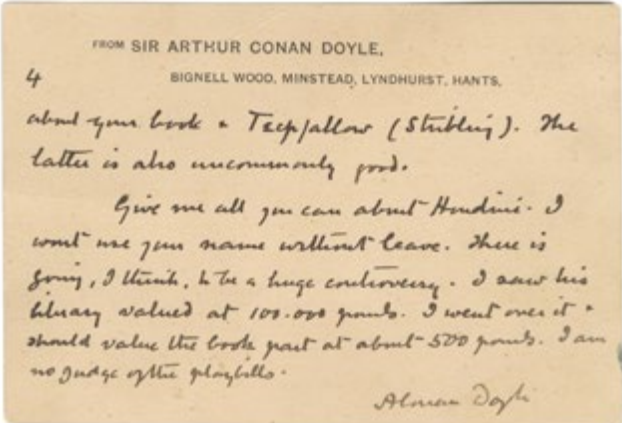 FROM SIR ARTHUR CONAN DOYLE,
4
BIGNELL WOOD, MINSTEAD, LYNDHURST, HANTS.
about your book & Teeftallow (Stribling). The
latter is also uncommonly good.
Give me all you can about Houdini. I
wont use your name without leave. There is
going, I think, to be a huge controversy. I saw his
library valued at 100.000 pounds. I went over it &
should value the book part at about 500 pounds. I am
no judge of the playbills.
A Conan Doyle